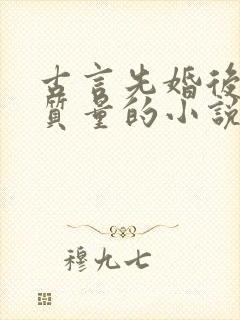 古言先婚後
質量的小說
穆九七